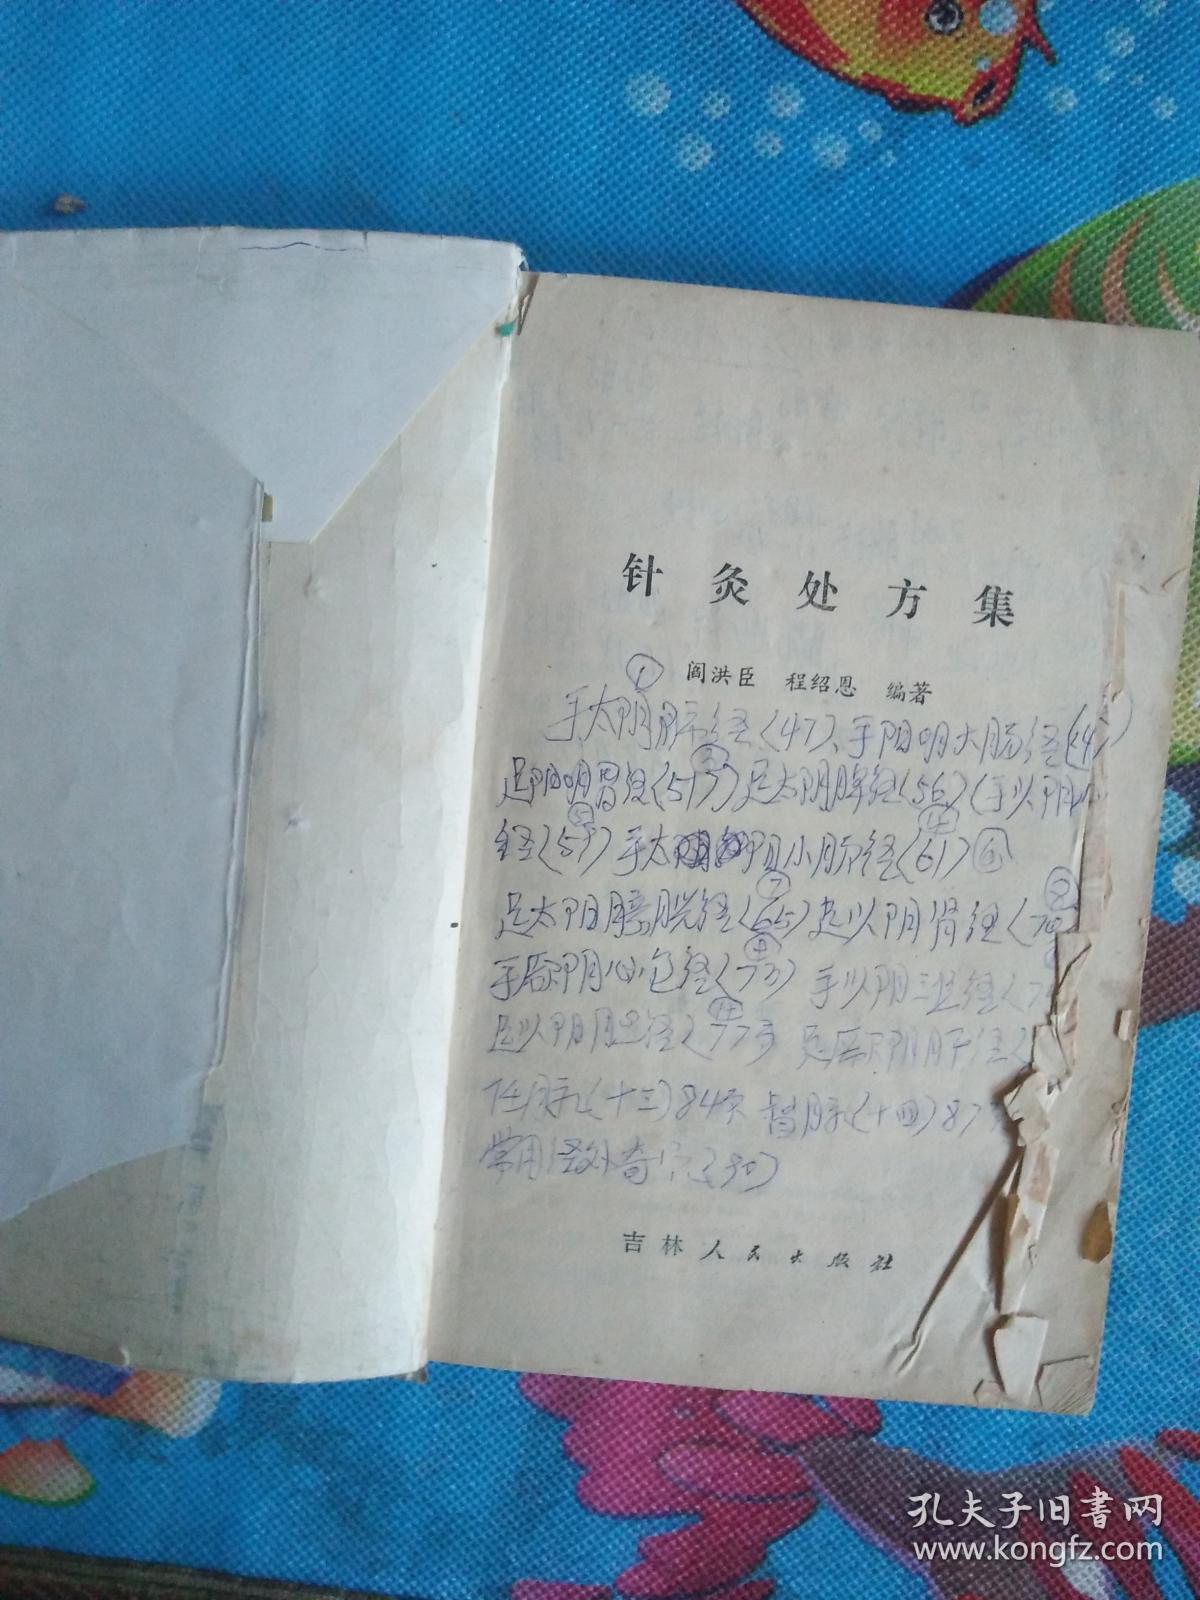 针灸处方集
阎洪臣 程绍恩 编著
①
手太阴肺经(47)、手阳明大肠经(4
③
足阳明胃经(51)足太阴脾经(56)(手少阴
⑤
经(59)手太阳小肠经(61)⑥
⑦
足太阳膀胱经(65)足少阴肾经(70
手厥阴心包经(73)手少阳三焦经(7
足少阳胆经(77页 足厥阴肝经(
任脉(十三)84页 督脉(十四)87
常用经外奇穴(90)
吉林人民出版社
孔夫子旧书网
www.kongfz.com